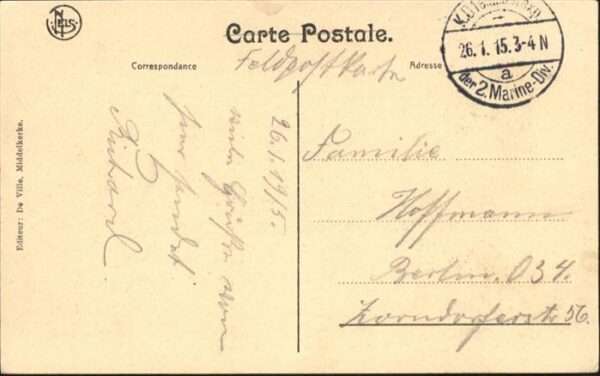 Nels
Carte Postale.
Correspondance
Feldpostkarte
Adresse
26.1.15.3-4 N
a
der 2.Marine-Div.
Editeur: De Ville, Middelkerke.
26.I.1915.
viele Grüße von
sendet
Richard.
Familie
Hoffmann
Berlin. O 34.
Zorndorferstr 56.